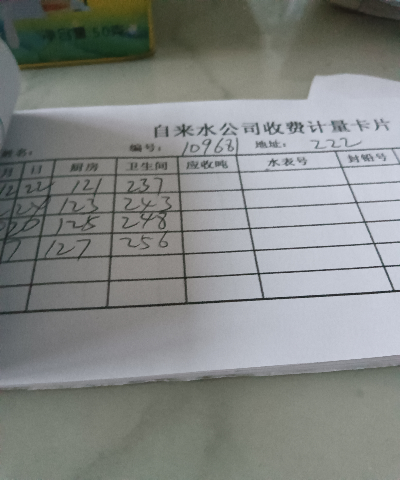 净含量 50克
自来水公司收费计量卡片
姓名: 编号: 10968 地址: 222
月 日 厨房 卫生间 应收吨 水表号 封铅号
12 22 121 237
24 123 243
20 125 248
7 127 256